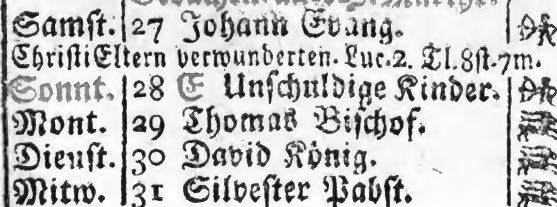 Samst. 27 Johann Evang.
Christi Eltern verwunderten. Luc. 2. Tl. 8st. 7m.
Sonnt. 28 E Unschuldige Kinder.
Mont. 29 Thomas Bischof.
Dienst. 30 David König.
Mitw. 31 Silvester Pabst.